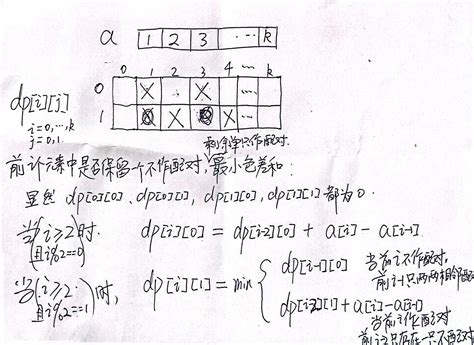 a 1 2 3 ... k
0 1 2 3 4 ... k
0 X X
1 X
dp[i][j]
i=0,...,k
j=0,1
剩余单只作配对.
前i个元素中是否保留一个不作配对, 最小色差和:
显然 dp[0][0]、dp[0][0], dp[1][0], dp[1][1] 都为0.
当(i≥2)时. dp[i][0] = dp[i-2][0] + a[i] - a[i-1]
且i%2==0
当(i≥2)时, dp[i][1] = min
且i%2==1
dp[i-1][0] 当前i不作配对,
前i-1只两两相邻配
dp[i-2][1] + a[i]-a[i-1]
当前i作配对
前i-2只存在一只不配对